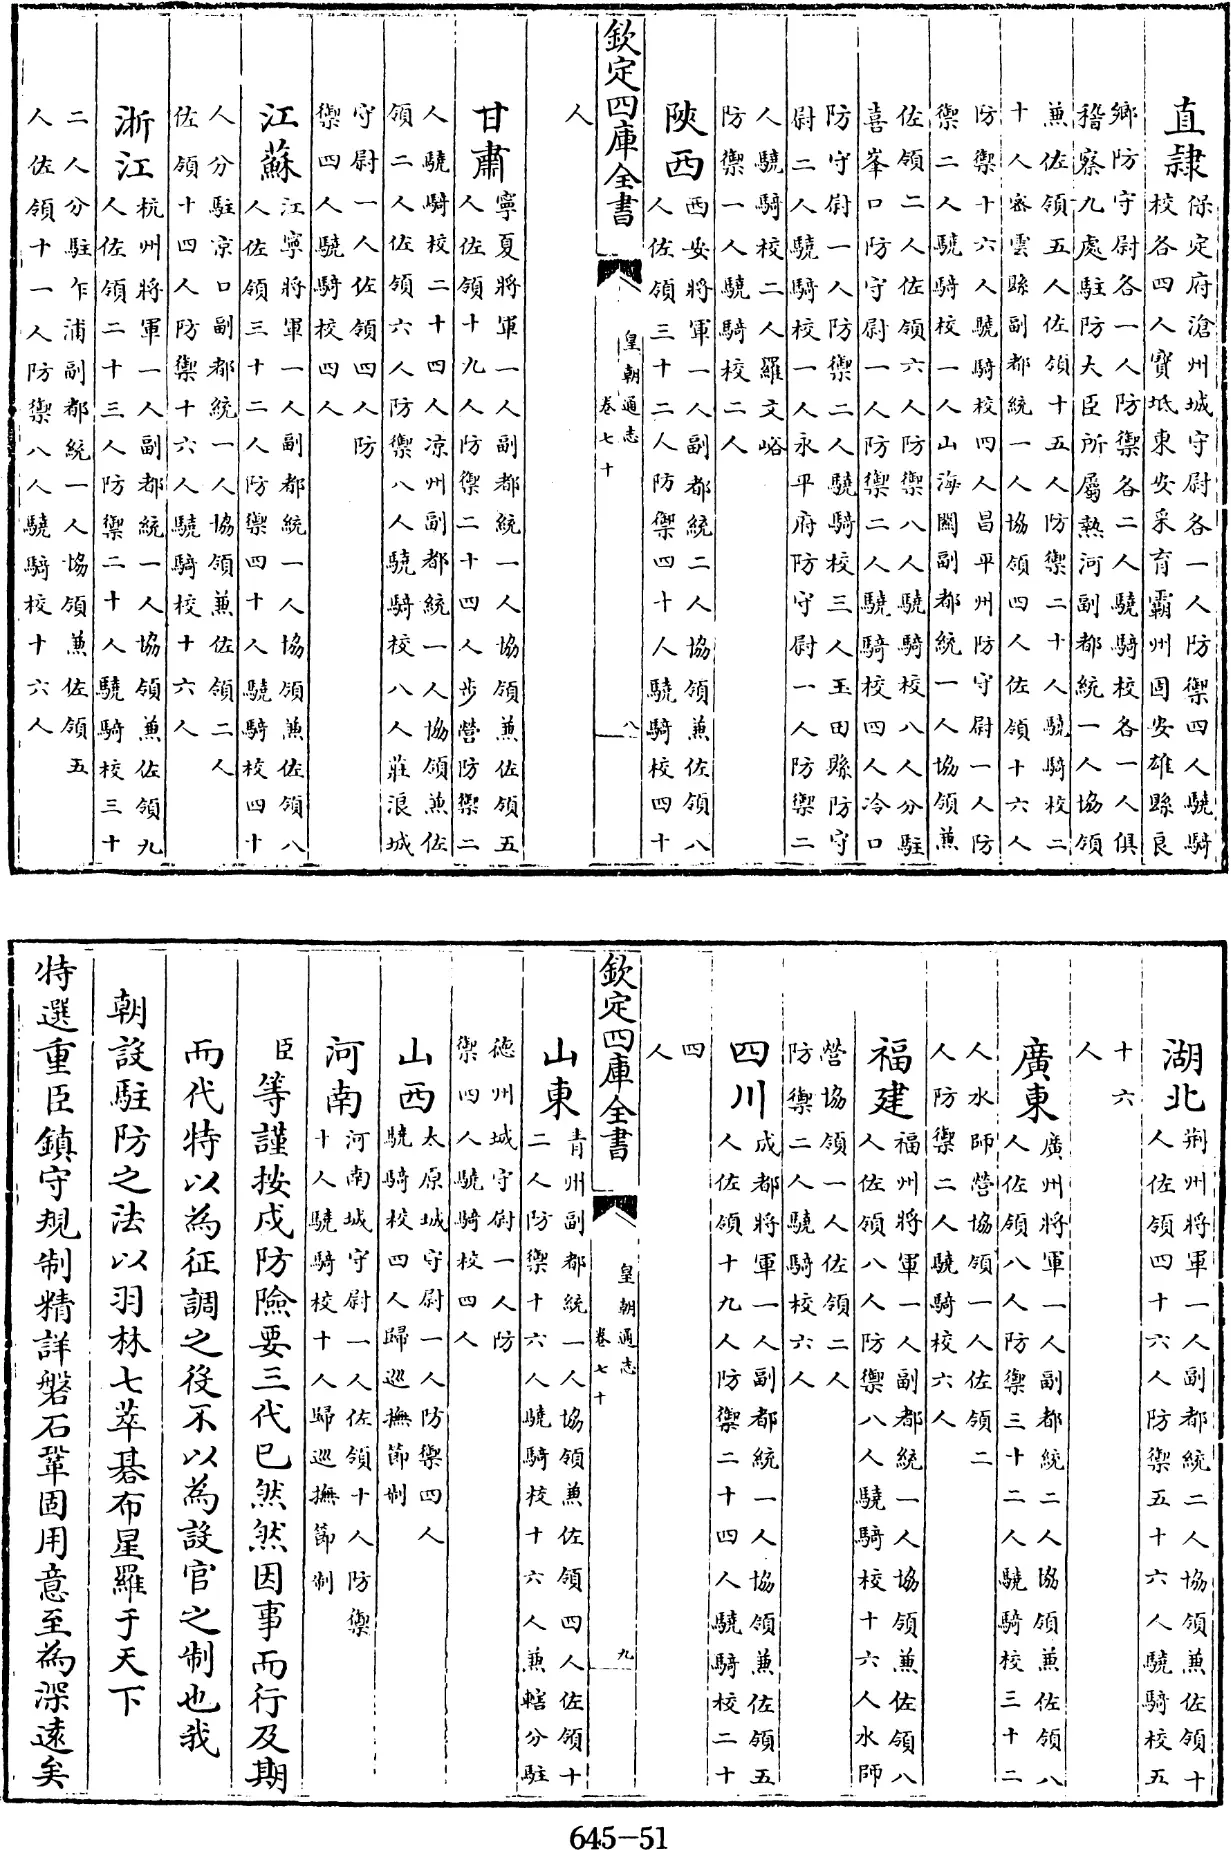 直隸
保定府滄州城守尉各一人防禦四人驍騎
校各四人寶坻東安采育霸州固安雄縣良
鄉防守尉各一人防禦各二人驍騎校各一人俱
稽察九處駐防大臣所屬熱河副都統一人協領
兼佐領五人佐領十五人防禦二十人驍騎校二
十人密雲縣副都統一人協領四人佐領十六人
防禦十六人驍騎校四人昌平州防守尉一人防
禦二人驍騎校一人山海關副都統一人協領兼
佐領二人佐領六人防禦八人驍騎校八人分駐
喜峯口防守尉一人防禦二人驍騎校四人冷口
防守尉一人防禦二人驍騎校三人玉田縣防守
尉二人驍騎校一人永平府防守尉一人防禦二
人驍騎校二人羅文峪
防禦一人驍騎校二人
陝西
西安將軍一人副都統二人協領兼佐領八
人佐領三十二人防禦四十人驍騎校四十
欽定四庫全書
皇朝通志
卷七十
八
人
甘肅
寧夏將軍一人副都統一人協領兼佐領五
人佐領十九人防禦二十四人步營防禦二
人驍騎校二十四人凉州副都統一人協領兼佐
領二人佐領六人防禦八人驍騎校八人莊浪城
守尉一人佐領四人防
禦四人驍騎校四人
江蘇
江寧將軍一人副都統一人協領兼佐領八
人佐領三十二人防禦四十人驍騎校四十
人分駐京口副都統一人協領兼佐領二人
佐領十四人防禦十六人驍騎校十六人
浙江
杭州將軍一人副都統一人協領兼佐領九
人佐領二十三人防禦二十人驍騎校三十
二人分駐乍浦副都統一人協領兼佐領五
人佐領十一人防禦八人驍騎校十六人
湖北
荆州將軍一人副都統二人協領兼佐領十
人佐領四十六人防禦五十六人驍騎校五
十六
人
廣東
廣州將軍一人副都統二人協領兼佐領八
人佐領八人防禦三十二人驍騎校三十二
人水師營協領一人佐領二
人防禦二人驍騎校六人
福建
福州將軍一人副都統一人協領兼佐領八
人佐領八人防禦八人驍騎校十六人水師
營協領一人佐領二人
防禦二人驍騎校六人
四川
成都將軍一人副都統一人協領兼佐領五
人佐領十九人防禦二十四人驍騎校二十
四
人
欽定四庫全書
皇朝通志
卷七十
九
山東
青州副都統一人協領兼佐領四人佐領十
二人防禦十六人驍騎校十六人兼轄分駐
德州城守尉一人防
禦四人驍騎校四人
山西
太原城守尉一人防禦四人
驍騎校四人歸巡撫節制
河南
河南城守尉一人佐領十人防禦
十人驍騎校十人歸巡撫節制
臣等謹按戍防險要三代已然然因事而行及期
而代特以為征調之役不以為設官之制也我
朝設駐防之法以羽林七萃碁布星羅于天下
特選重臣鎮守規制精詳磐石鞏固用意至為深遠矣
645-51